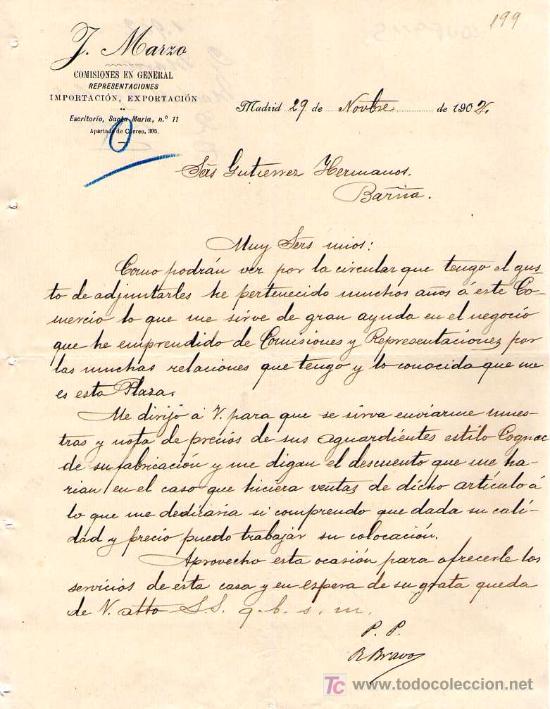 199
J. Marzo
COMISIONES EN GENERAL
REPRESENTACIONES
IMPORTACIÓN, EXPORTACIÓN
Escritorio, Santa María, n.º 11
Apartado de Correo, 305.
Madrid 29 de Novbre de 1902.
Sres Gutierrez Hermanos.
Barña.
Muy Sres mios:
Como podrán ver por la circular que tengo el gus
to de adjuntarles he pertenecido muchos años á este Co-
mercio lo que me sirve de gran ayuda en el negocio
que he emprendido de Comisiones y Representaciones por
las muchas relaciones que tengo y lo conocida que me
es esta Plaza.
Me dirijo á V. para que se sirva enviarme mues-
tras y nota de precios de sus aguardientes estilo Cognac
de su fabricación y me digan el descuento que me ha-
rian en el caso que hiciera ventas de dicho artículo á
lo que me dedicaria si comprendo que dada su cali-
dad y precio puedo trabajar su colocación.
Aprovecho esta ocasión para ofrecerle los
servicios de esta casa y en espera de su grata queda
de V. atto S.S. q. b. s. m.
P. P.
R Bravo
TC www.todocoleccion.net